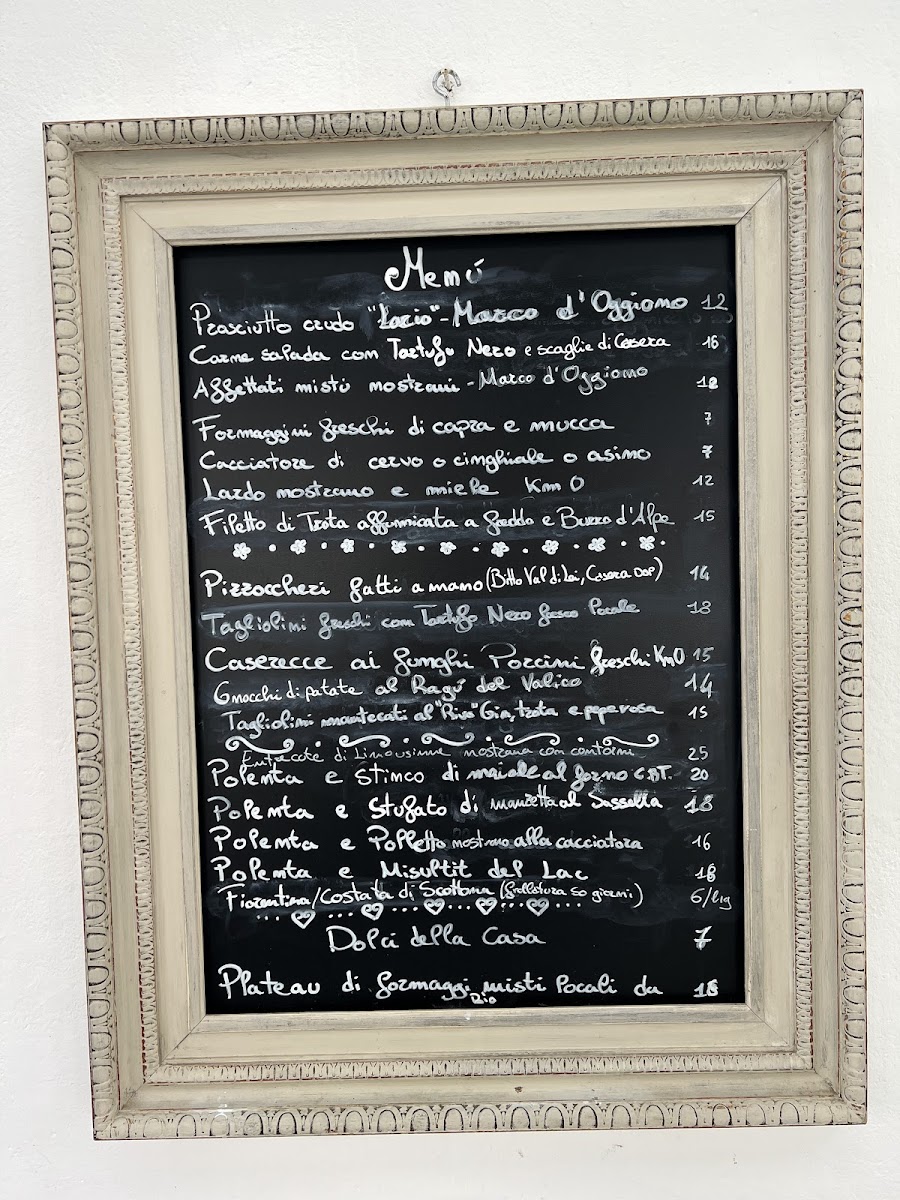 Menú
Prosciutto crudo "Lario" - Marco d'Oggiono 12
Carne salada con Tartufo Nero e scaglie di Casera 16
Affettati misti nostrani - Marco d'Oggiono 12
Formaggini freschi di capra e mucca 7
Cacciatore di cervo o cinghiale o asino 7
Lardo nostrano e miele Km 0 12
Filetto di Trota affumicata a freddo e Burro d'Alpe 15
Pizzoccheri fatti a mano (Bitto Val di Lei, Casera DOP) 14
Tagliolini freschi con Tartufo Nero fresco locale 18
Caserecce ai funghi Porcini freschi Km0 15
Gnocchi di patate al Ragú del Valico 14
Tagliolini mantecati al "Riva" Gin, trota e pepe rosa 15
Entrecote di Limousinne nostrana con contorni 25
Polenta e Stinco di maiale al forno C.B.T. 20
Polenta e Stufato di manzetta al Sassella 18
Polenta e Polletto nostrano alla cacciatora 16
Polenta e Misultit del Lac 18
Fiorentina/Costata di Scottona (frollatura 50 giorni) 6/hg
Dolci della Casa 7
Plateau di formaggi misti locali da